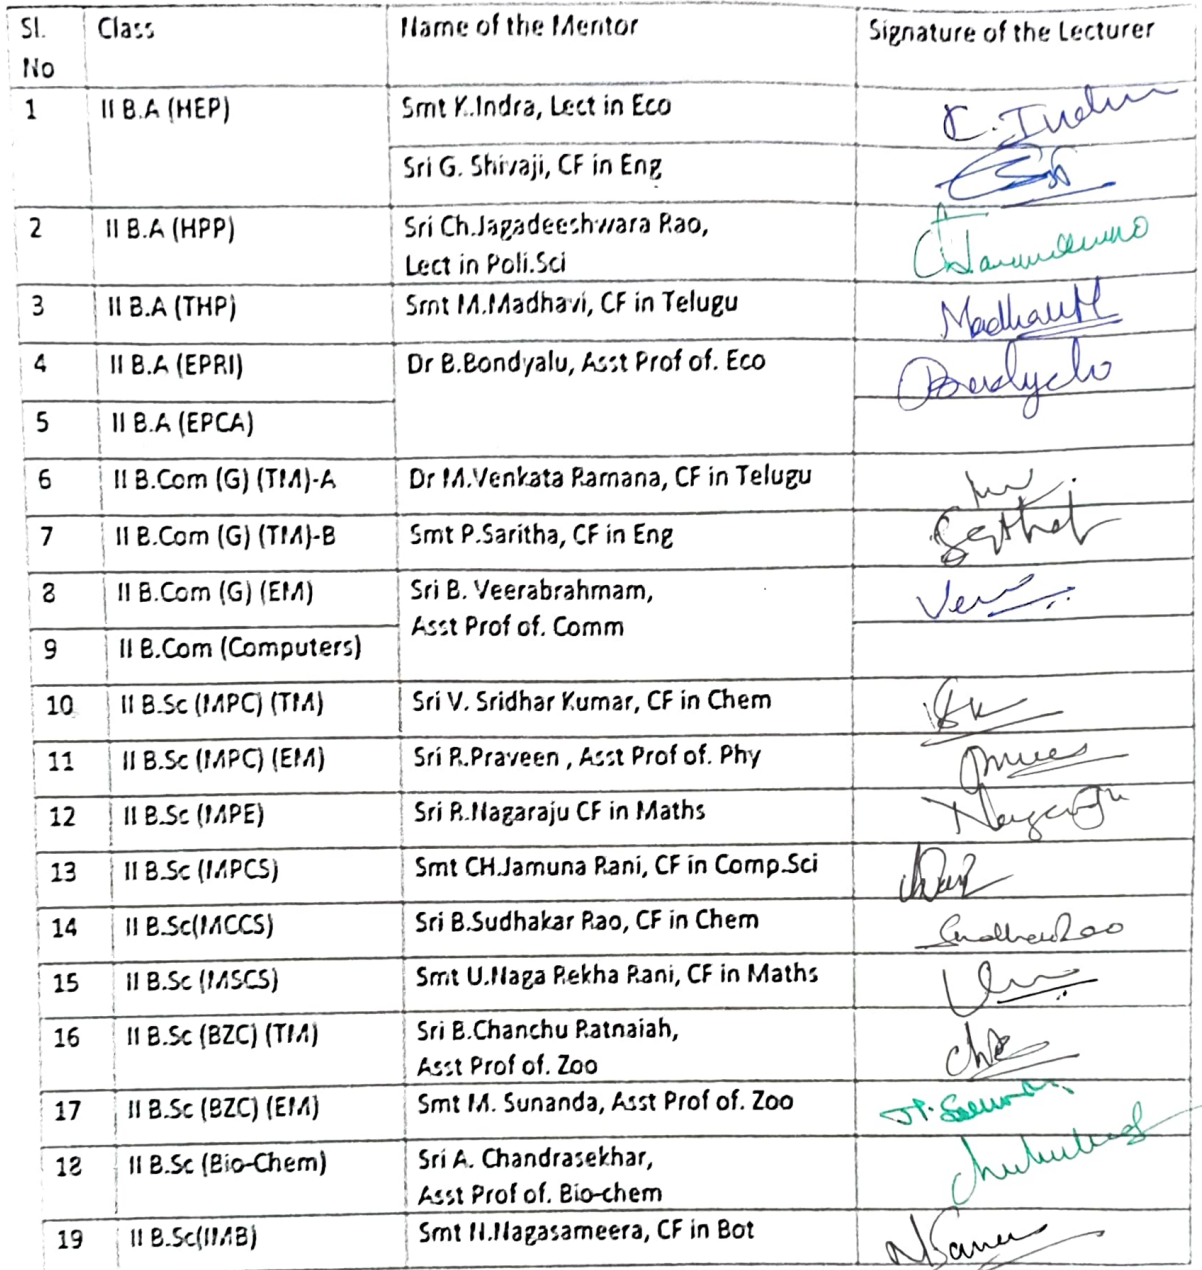 Sl. No Class Name of the Mentor Signature of the Lecturer
1 II B.A (HEP) Smt K.Indra, Lect in Eco K. Indira
Sri G. Shivaji, CF in Eng
2 II B.A (HPP) Sri Ch.Jagadeeshwara Rao,
Lect in Poli.Sci
3 II B.A (THP) Smt M.Madhavi, CF in Telugu Madhavi M
4 II B.A (EPRI) Dr B.Bondyalu, Asst Prof of. Eco
5 II B.A (EPCA)
6 II B.Com (G) (TM)-A Dr M.Venkata Ramana, CF in Telugu
7 II B.Com (G) (TM)-B Smt P.Saritha, CF in Eng
8 II B.Com (G) (EM) Sri B. Veerabrahmam,
Asst Prof of. Comm
9 II B.Com (Computers)
10 II B.Sc (MPC) (TM) Sri V. Sridhar Kumar, CF in Chem
11 II B.Sc (MPC) (EM) Sri R.Praveen , Asst Prof of. Phy
12 II B.Sc (MPE) Sri R.Nagaraju CF in Maths Nagaraju
13 II B.Sc (MPCS) Smt CH.Jamuna Rani, CF in Comp.Sci
14 II B.Sc(MCCS) Sri B.Sudhakar Rao, CF in Chem Sudhakar Rao
15 II B.Sc (MSCS) Smt U.Naga Rekha Rani, CF in Maths
16 II B.Sc (BZC) (TM) Sri B.Chanchu Ratnaiah,
Asst Prof of. Zoo
17 II B.Sc (BZC) (EM) Smt M. Sunanda, Asst Prof of. Zoo
18 II B.Sc (Bio-Chem) Sri A. Chandrasekhar,
Asst Prof of. Bio-chem
19 II B.Sc(IMB) Smt N.Nagasameera, CF in Bot